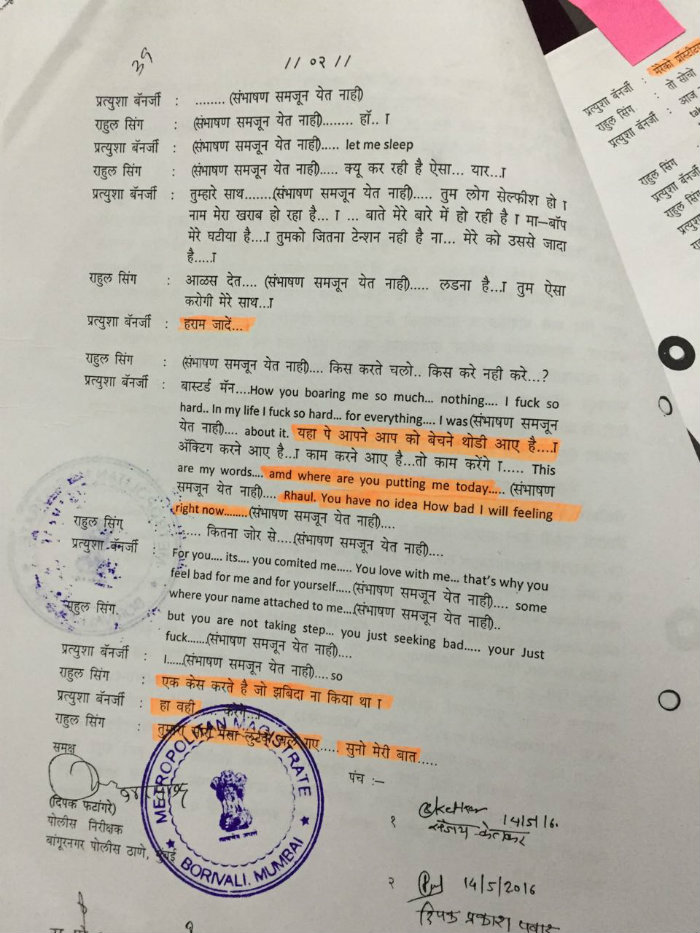 39
// ०२ //
प्रत्युशा बॅनर्जी : ........ (संभाषण समजून येत नाही)
राहुल सिंग : (संभाषण समजून येत नाही)........ हॉ.. ।
प्रत्युशा बॅनर्जी : (संभाषण समजून येत नाही)..... let me sleep
राहुल सिंग : (संभाषण समजून येत नाही)..... क्यू कर रही है ऐसा... यार...।
प्रत्युशा बॅनर्जी : तुम्हारे साथ........(संभाषण समजून येत नाही)..... तुम लोग सेल्फीश हो ।
नाम मेरा खराब हो रहा है... । ... बाते मेरे बारे में हो रही है । मा–बॉप
मेरे घटीया है...। तुमको जितना टेन्शन नही है ना... मेरे को उससे जादा
है.....।
राहुल सिंग : आळस देत.... (संभाषण समजून येत नाही)..... लडना है...। तुम ऐसा
करोगी मेरे साथ...।
प्रत्युशा बॅनर्जी : हराम जादें...
राहुल सिंग : (संभाषण समजून येत नाही).... किस करते चलो.. किस करे नही करे...?
प्रत्युशा बॅनर्जी : बास्टर्ड मॅन....How you boaring me so much... nothing.... I fuck so
hard.. In my life I fuck so hard... for everything.... I was(संभाषण समजून
येत नाही).... about it. यहा पे आपने आप को बेचने थोडी आए है....।
ॲक्टिग करने आए है...। काम करने आए है...तो काम करेंगे ।..... This
are my words.... amd where are you putting me today..... (संभाषण
समजून येत नाही).... Rhaul. You have no idea How bad I will feeling
right now........(संभाषण समजून येत नाही)....
राहुल सिंग : ..... कितना जोर से....(संभाषण समजून येत नाही)....
प्रत्युशा बॅनर्जी : For you.... its.... you comited me..... You love with me... that's why you
feel bad for me and for yourself.....(संभाषण समजून येत नाही).... some
where your name attached to me...(संभाषण समजून येत नाही)..
राहुल सिंग : but you are not taking step... you just seeking bad..... your Just
fuck......(संभाषण समजून येत नाही)....
प्रत्युशा बॅनर्जी : I.....(संभाषण समजून येत नाही)....so
राहुल सिंग : एक केस करते है जो झबिदा ना किया था ।
प्रत्युशा बॅनर्जी : हा वही करेंगे
राहुल सिंग : पैसा गए..... सुनो मेरी बात.....
समक्ष
पंच :–
(दिपक फटांगरे)
पोलीस निरीक्षक
बांगूरनगर पोलीस ठाणे, मुंबई
METROPOLITAN MAGISTRATE
BORIVALI, MUMBAI
१ 14/5/16.
संजय केळकर
२ 14/5/2016
दिपक प्रकाश पवार
मेरेको
प्रत्युशा बॅनर्जी : तो सोचो
राहुल सिंग : आज
प्रत्युशा बॅनर्जी :
राहुल सिंग :
प्रत्युशा बॅनर्जी
राहुल सिंग